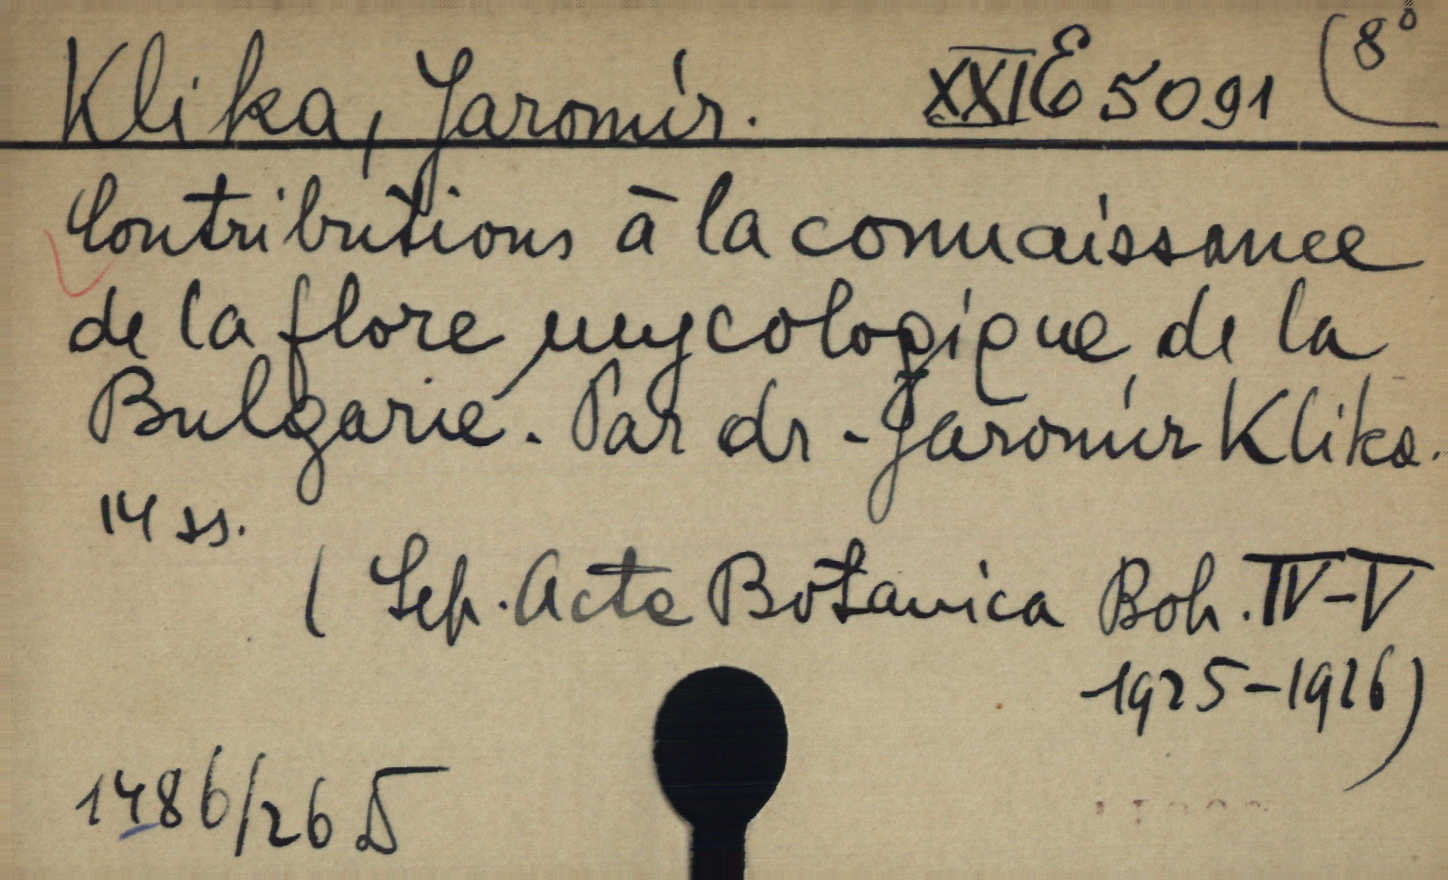 Klika, Jaromír. XXI E 5091 (8°
Contributions à la connaissance
de la flore mycologique de la
Bulgarie. Par dr. Jaromír Klika.
14 ss.
(Sep. Acta Botanica Boh. IV-V
1925-1926)
1486/26 D